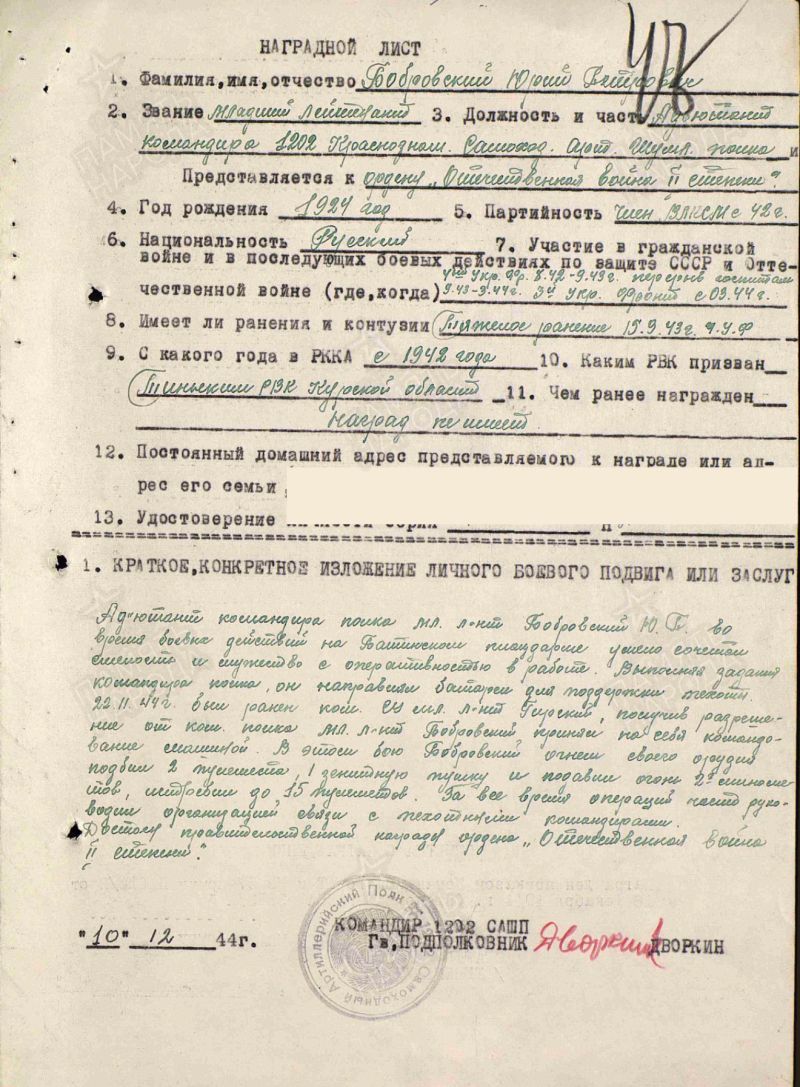 НАГРАДНОЙ ЛИСТ
1. Фамилия,имя,отчество Бобровский Юрий Петрович
2. Звание младший лейтенант 3. Должность и часть Адъютант
командира 1202 Краснознам. Самоход. Арт. Штурм. полка и
Представляется к ордену „Отечественная война II степени".
4. Год рождения 1924 год 5. Партийность Член ВЛКСМ с 42 г.
6. Национальность Русский 7. Участие в гражданской
войне и в последующих боевых действиях по защите СССР и Отте-
4ый Укр. Фр. 8.42-9.43г. перерыв госпиталь
чественной войне (где,когда) 9.43-3.44г. 3й Укр. фронт с 03.44г.
8. Имеет ли ранения и контузии Тяжелое ранение 15.9.43г. 4.У.Ф
9. С какого года в РККА с 1942 года 10. Каким РВК призван
РВК Курской области 11. Чем ранее награжден
наград не имеет
12. Постоянный домашний адрес представляемого к награде или ад-
рес его семьи
13. Удостоверение личности серии
1. КРАТКОЕ,КОНКРЕТНОЕ ИЗЛОЖЕНИЕ ЛИЧНОГО БОЕВОГО ПОДВИГА ИЛИ ЗАСЛУГ
Адъютант командира полка мл. л-нт Бобровский Ю.П. во
время боевых действий на плацдарме умело сочетал
смелость и мужество с оперативностью в работе. Выполняя задания
командира полка, он направлял батареи для поддержки пехоты.
22.11.44г. был ранен ком. СУ мл. л-нт Гирский, получив разреше-
ние от ком. полка мл. л-нт Бобровский принял на себя командо-
вание машиной. В этом бою Бобровский огнем своего орудия
подбил 2 пулемета, 1 зенитную пушку и подавил огонь 2х миноме-
тов, истребил до 15 немцев. За все время операций часто руко-
водил организацией связи с пехотными командирами.
Достоин правительственной награды ордена „Отечественная война
II степени".
"10" 12 44г.
КОМАНДИР 1202 САШП
Гв,ПОДПОЛКОВНИК Дворкин ДВОРКИН
Самоходный Артиллерийский Полк